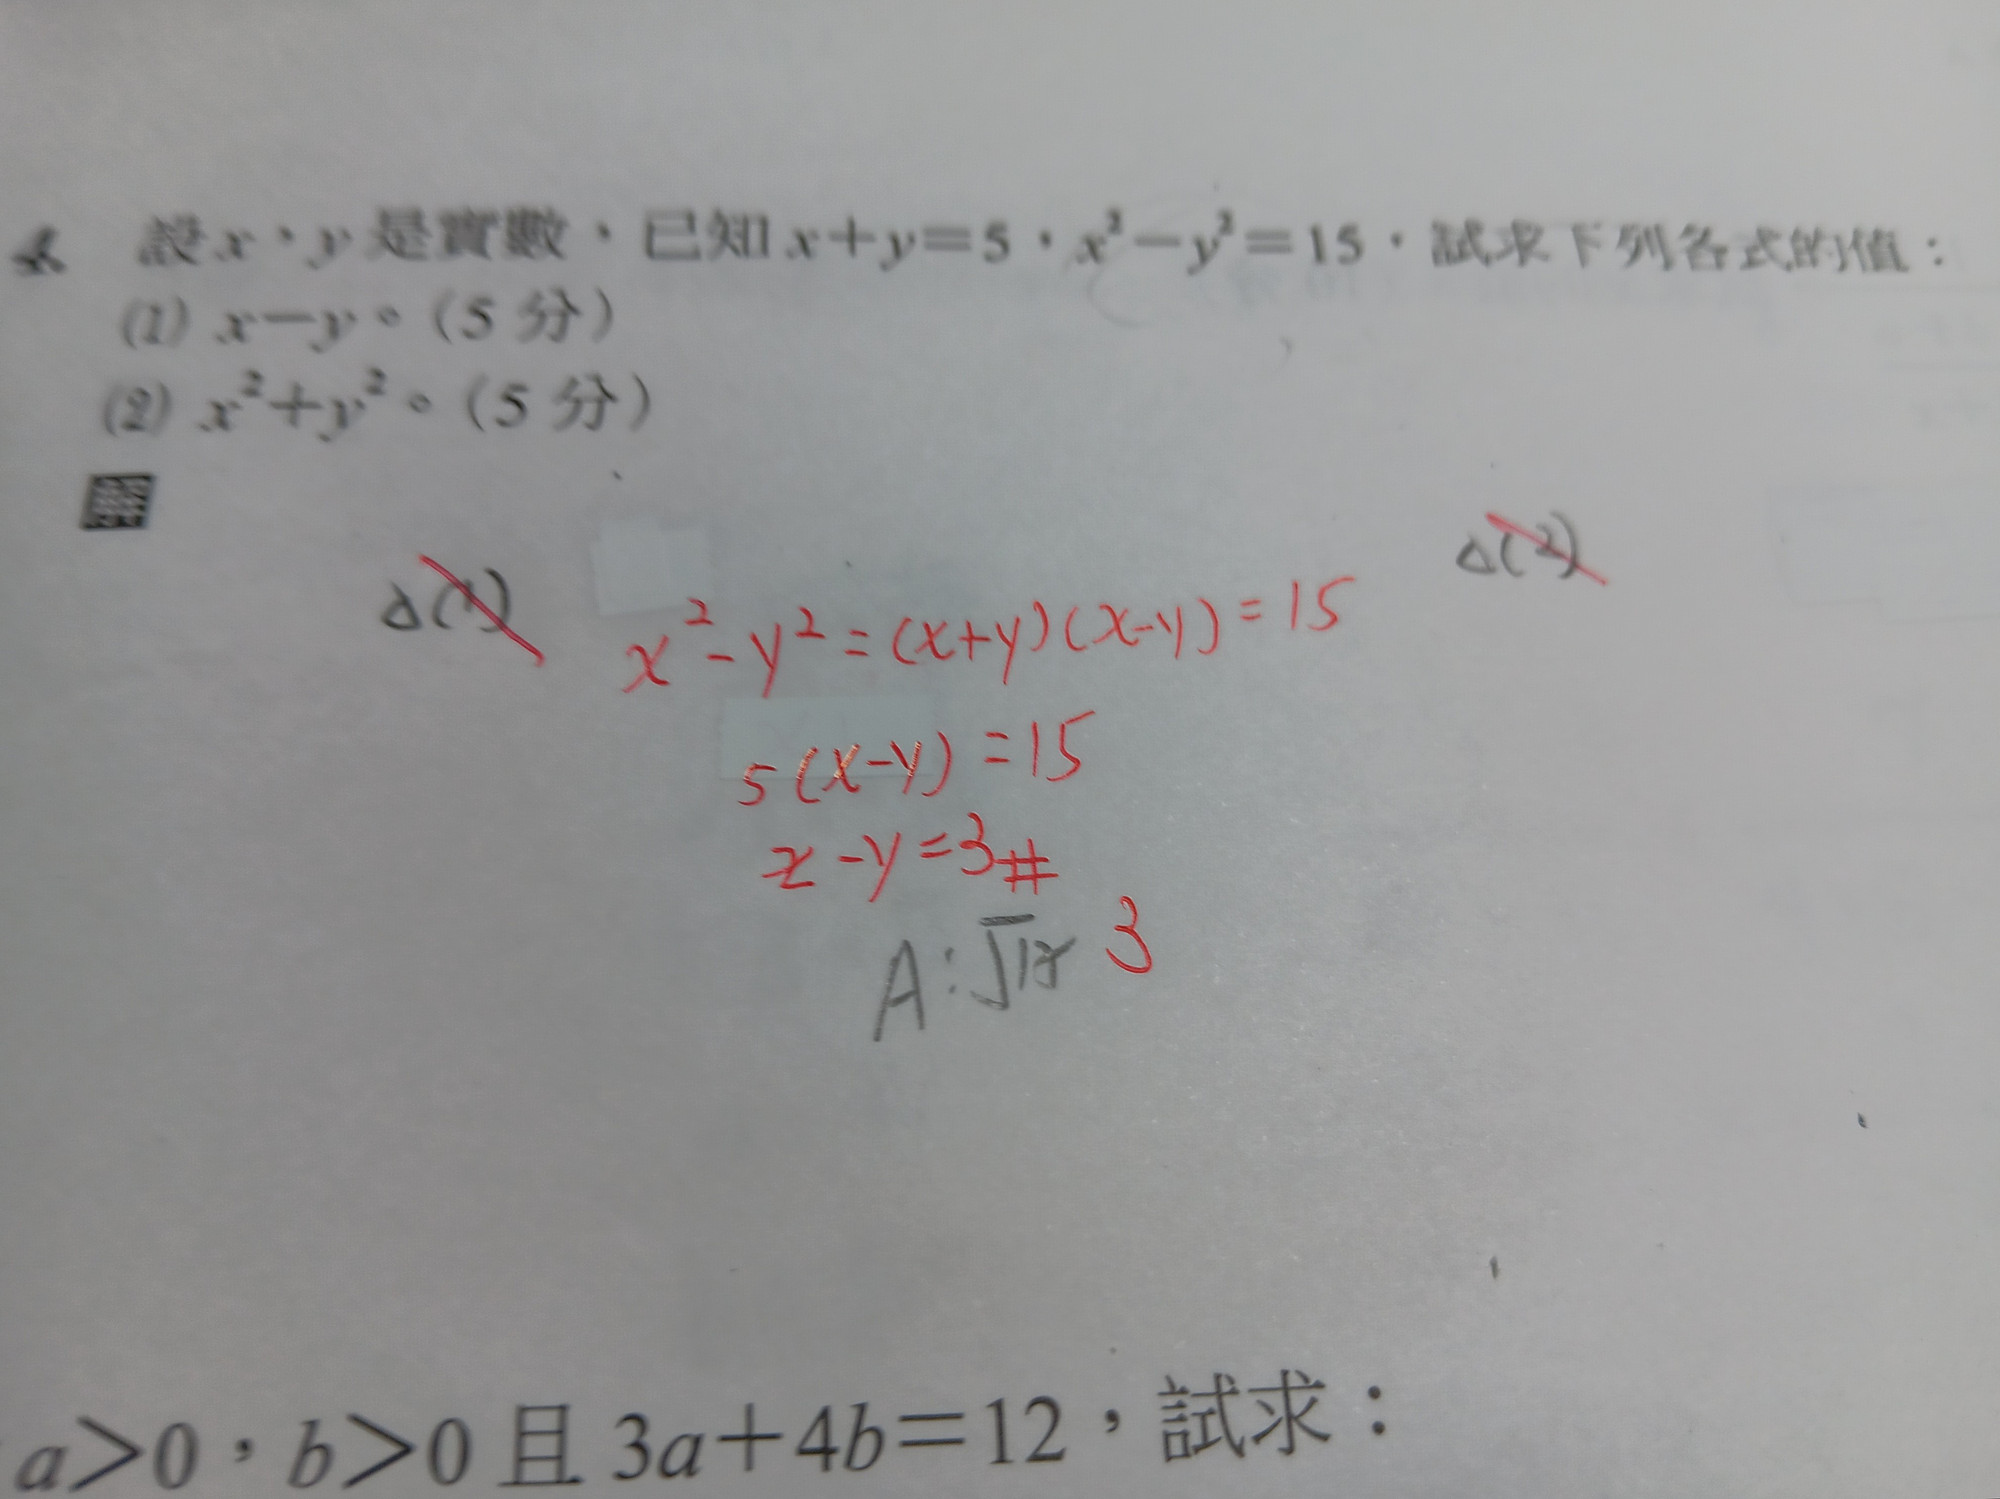 設 x，y 是實數，已知 x+y=5，x²-y²=15，試求下列各式的值：
(1) x-y。（5 分）
(2) x²+y²。（5 分）
解
△(1)
x²-y²=(x+y)(x-y)=15
△(2)
5(x-y)=15
x-y=3#
A: 3
a>0，b>0 且 3a+4b=12，試求：